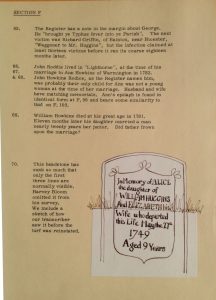 SECTION F
65. The Register has a note in the margin about George.
He "brought ye Typhus fever into ye Parish". The next
victim was Richard Griffin, of Hanion, near Hinstor,
"Waggoner to Mr. Huggins", but the infection claimed at
least thirteen victims before it ran its course eighteen
months later.
66. John Hoddle lived in "Lighthorne", at the time of his
marriage to Ann Hawkins of Warmington in 1783.
67.
& 68. John Hawkins Hodges, as the Register names him,
was probably their only child for Ann was not a young
woman at the time of her marriage. Husband and wife
have matching memorials. Ann's epitaph is found in
identical form at F. 96 and bears some similarity
to that on F. 103.
69. William Hawkins died at his great age in 1781.
Eleven months later his daughter married a man
nearly twenty years her junior. Did father frown
upon the marriage?
70. This headstone has
sunk so much that
only the first
three lines are
normally visible.
Harvey Bloom
omitted it from
his survey.
We include a
sketch of how
our transcriber
saw it before the
turf was reinstated.
In Memory of ALICE
the daughter of
WILLIAM HUGGINS
And ELIZABETH his
Wife who departed
this Life May the 27th
1749
Aged 9 Years